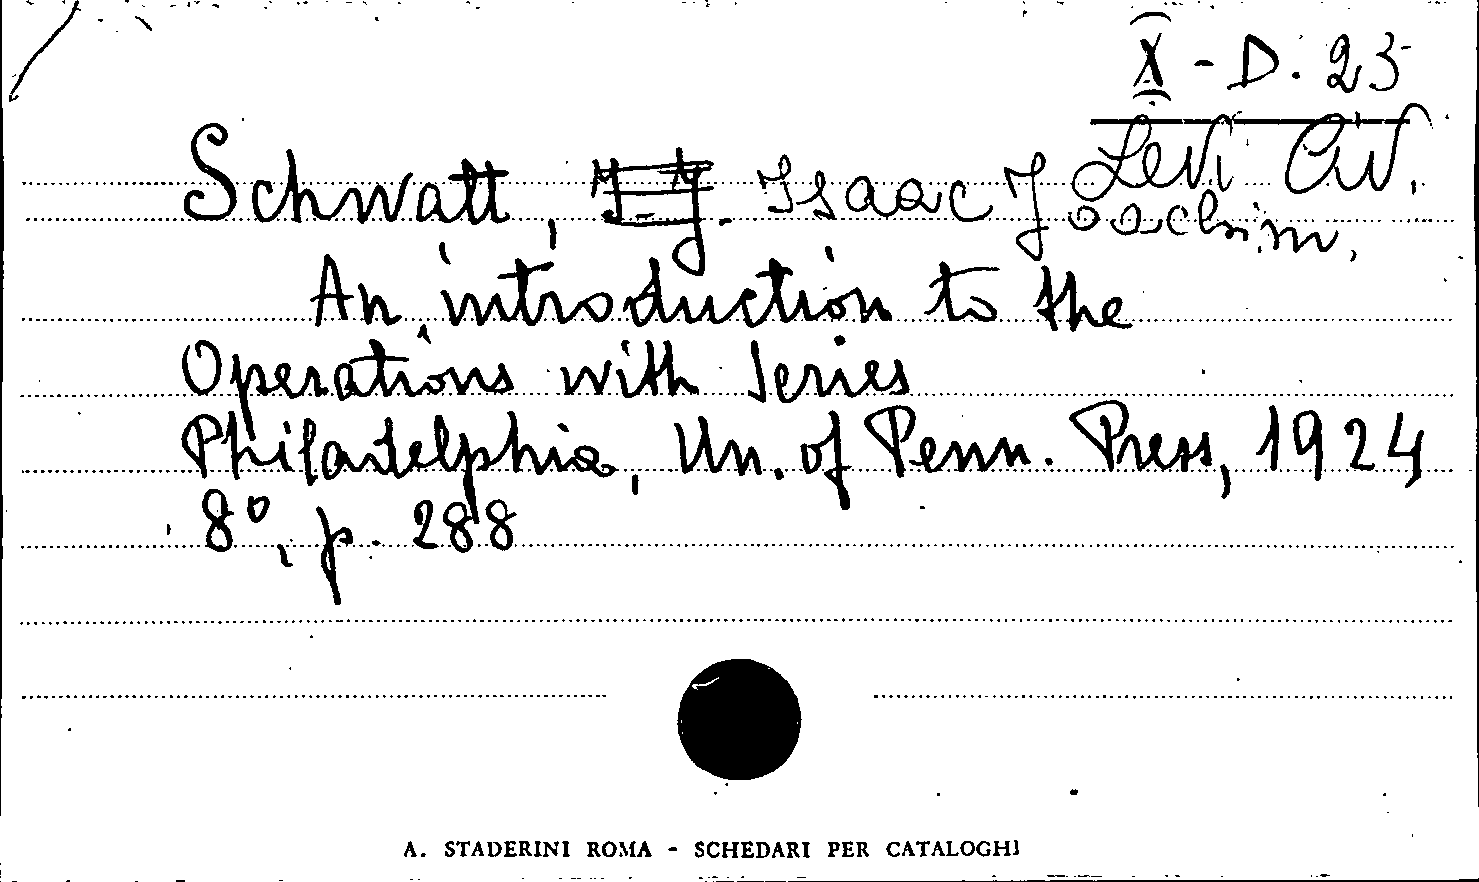 X - D. 23
Levi Civ.
Schwatt, I. J. Isaac Joachim.
An introduction to the
Operations with Series
Philadelphia, Un. of Penn. Press, 1924
8º, p. 288
A. STADERINI ROMA - SCHEDARI PER CATALOGHI